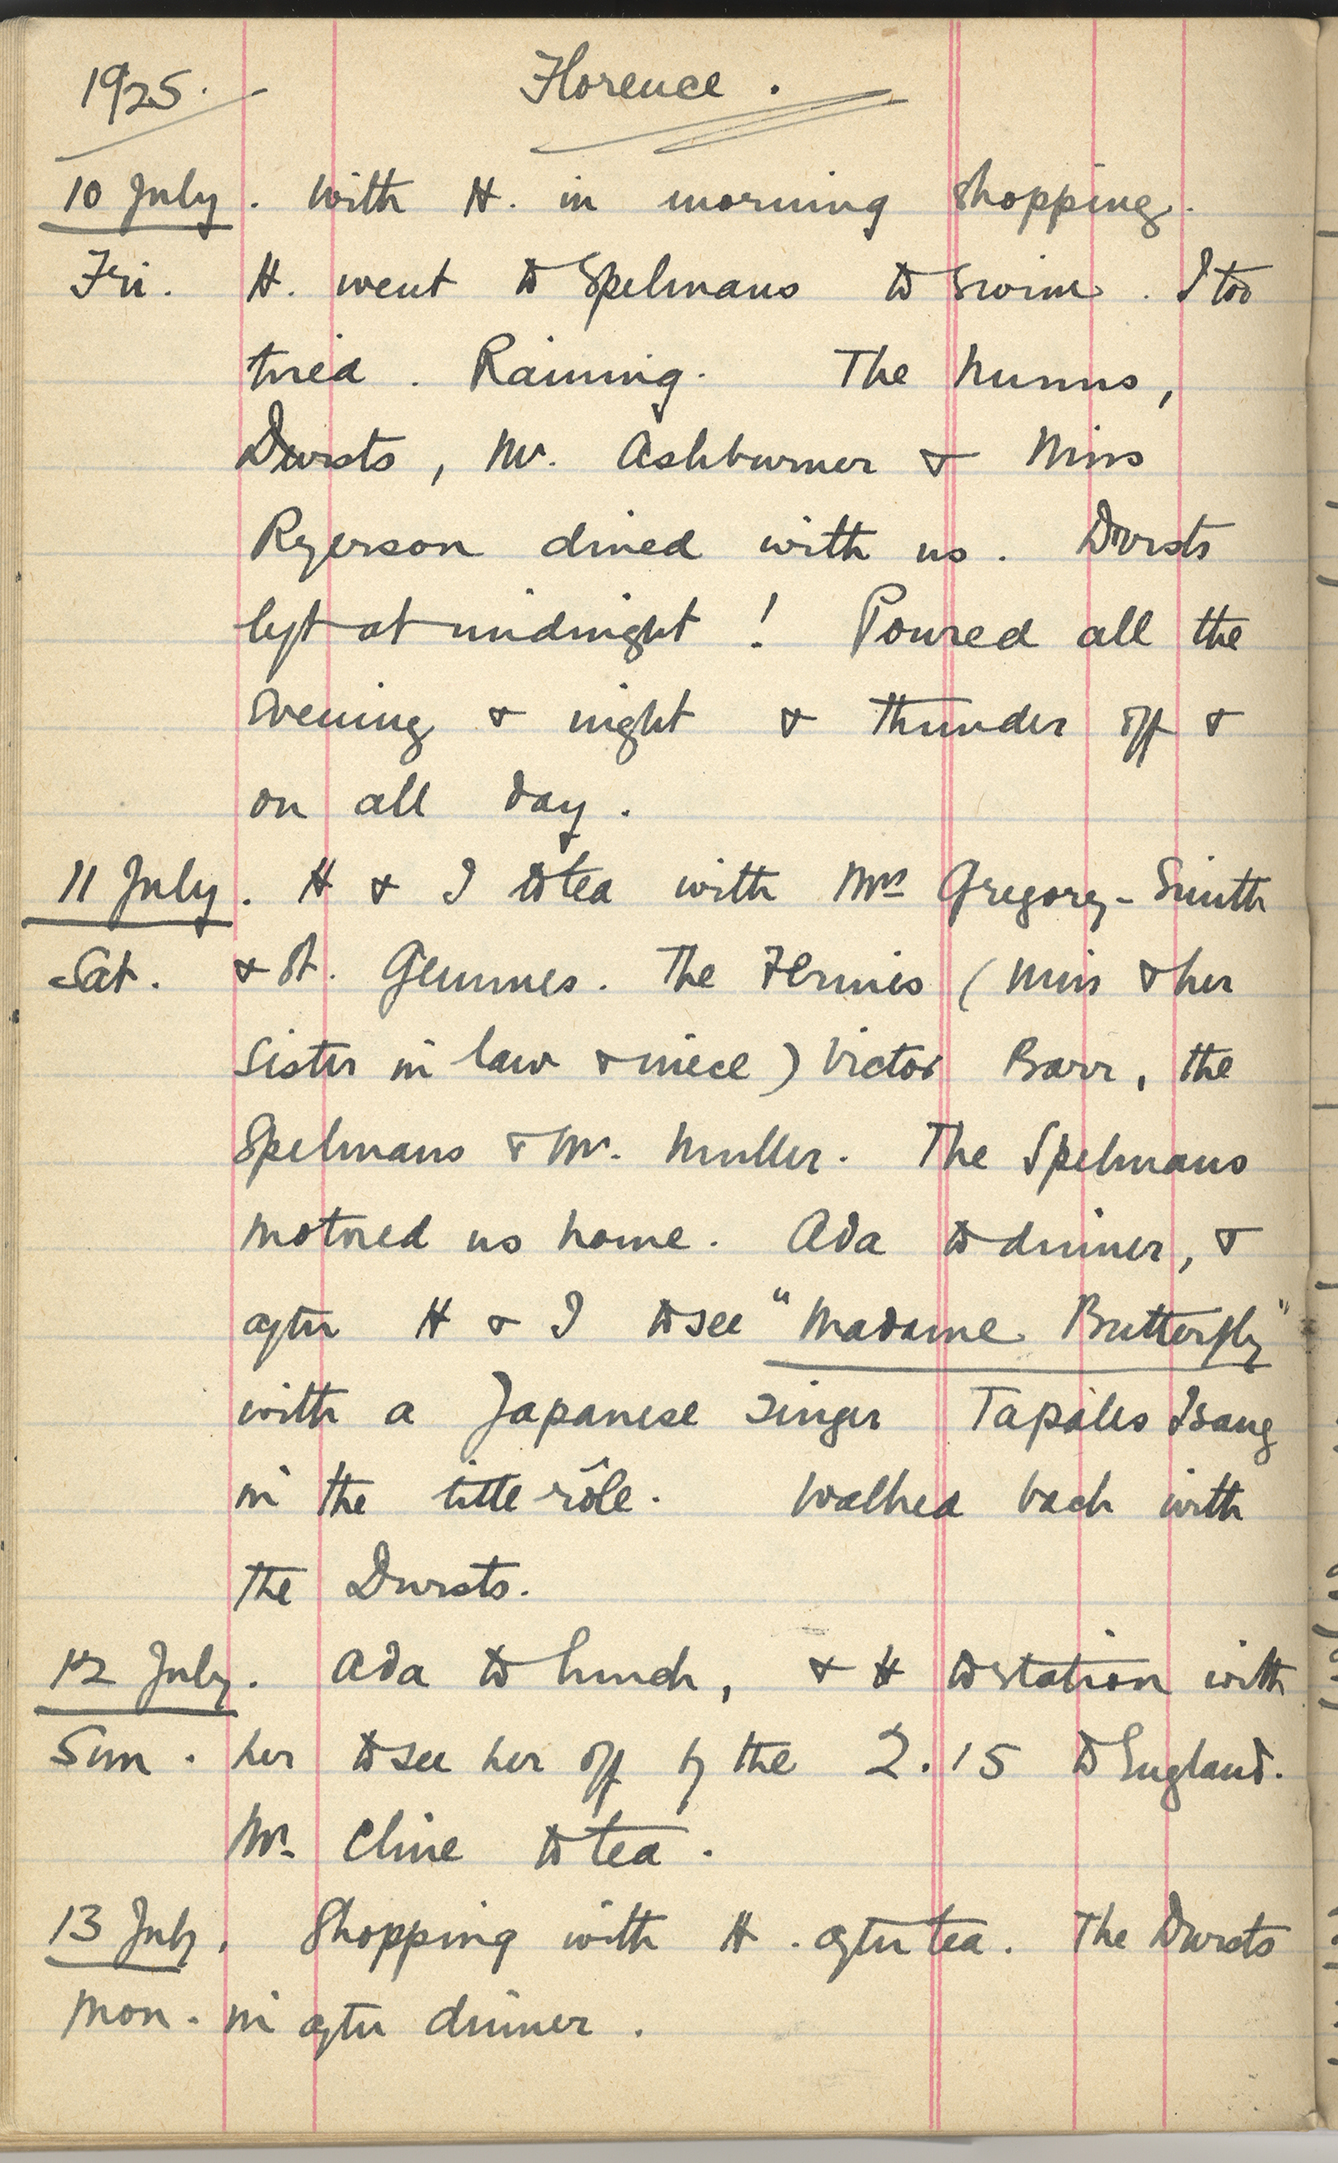 1925. Florence.
10 July. With H. in morning shopping.
Fri. H. went to Spelmans to swim. I too
tried. Raining. The Nunns,
Dursts, Mr. Ashburner & Miss
Ryerson dined with us. Dursts
left at midnight! Poured all the
evening & night & thunder off &
on all day.
11 July. H & I to tea with Mrs Gregory-Smith
Sat. & St. Gemmes. The (Miss & her
sister in law & niece) Victor Barr, the
Spelmans & Mr. Muller. The Spelmans
motored us home. Ada to dinner, &
after H & I to see "Madame Butterfly"
with a Japanese singer Tapales Isang
in the title-rôle. Walked back with
the Dursts.
12 July. Ada to lunch, & H to station with
Sun. her to see her off by the 2.15 to England.
Mr. Cline to tea.
13 July. Shopping with H. after tea. The Dursts
Mon. in after dinner.